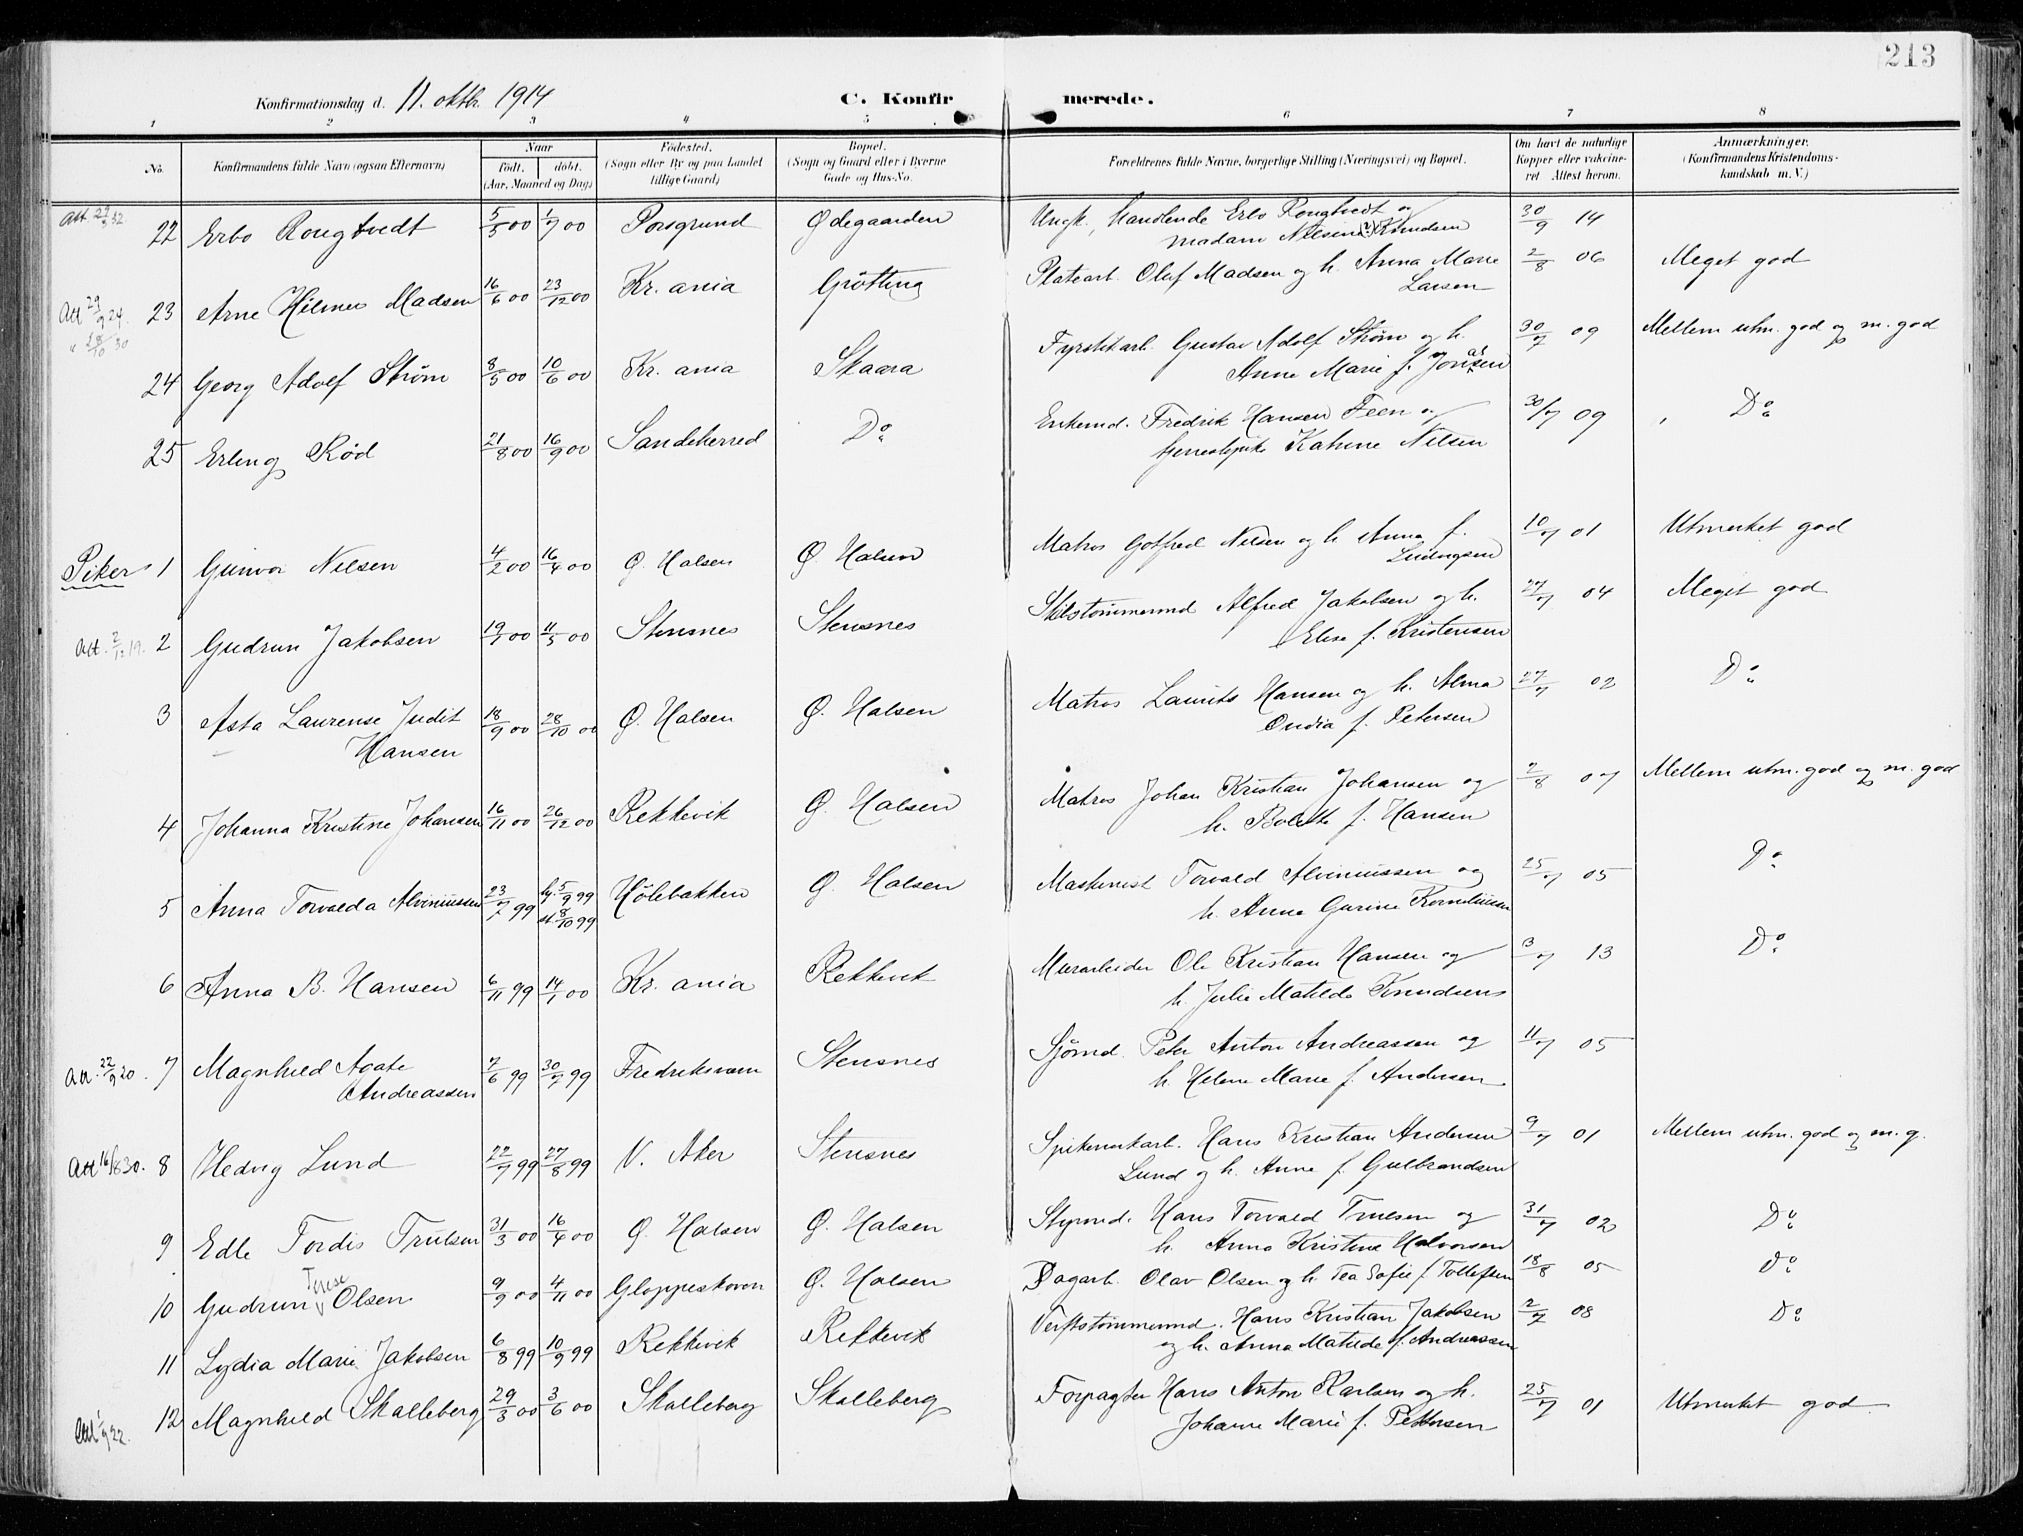 213
Konfirmationsdag d. 11. oktbr. 1914 C. Konfirmerede.
1 2 3 4 5 6 7 8
No. Konfirmandens fulde Navn (ogsaa Efternavn) Naar født. døbt. (Aar, Maaned og Dag) Fødested. (Sogn eller By og paa Landet tillige Gaard) Bopæl. (Sogn og Gaard eller i Byerne Gade og Hus-No. Forældrenes fulde Navne, borgerlige Stilling (Næringsvei) og Bopæl. Om havt de naturlige Kopper eller vakcineret. Attest herom. Anmærkninger. (Konfirmandens Kristendomskundskab m. V.)
22 Erbo Rougtvedt 5/5 00 1/7 00 Porsgrund Ødegaarden Ungk., Handlende Erbo Rougtvedt og 30/9 14
madam Nilsine (?) Knudsen
Att 29/9 24. 23 Arne Hilmer Madsen 16/6 00 23/12 00 Kr. ania Grøtting Platearb. Oluf Madsen og h. Anna Marie 2/8 06 Meget god
" 28/10 30 Larsen
24 Georg Adolf Strøm 8/5 00 10/6 00 Kr. ania Skaara Fyrstikarb. Gustav Adolf Strøm og h. 30/7 09 Mellem utm. god og m. god
Anne Marie f. Jonasen
25 Erling Rød 21/8 00 16/9 00 Sandeherred Do Enkemd. Fredrik Hansen Feen og 30/7 09 Do
Katrine Nilsen
Piker 1 Gunvor Nilsen 4/2 00 16/4 00 Ø. Halsen Ø. Halsen Matros Gotfred Nilsen og h. Anna f. 10/7 01 Utmerket god
Ludvigsen
Att. 2/12 19. 2 Gudrun Jakobsen 19/1 00 11/5 00 Stensnes Stensnes Skibstømmermd Alfred Jakobsen og h. 27/7 04 Meget god
Elise f. Kristensen
3 Asta Laurense Judit 18/9 00 28/10 00 Ø. Halsen Ø. Halsen Matros Laurits Hansen og h. Alma 27/7 02 Do
Hansen Ondia f. Petersen
4 Johanna Kristine Johansen 16/11 00 26/12 00 Rekkevik Ø. Halsen Matros Johan Kristian Johansen og 2/8 07 Mellem utm. god og m. god
h. Bolette f. Hansen
5 Anna Torvalda Alviniussen 23/7 99 hj. 5/9 99 Hølebakken Ø. Halsen Maskinist Torvald Alviniussen og 25/7 05 Do
st. 8/10 99 h. Anna Gurine Korneliusen
6 Anna B. Hansen 6/11 99 14/1 00 Kr. ania Rekkevik Murarbeider Ole Kristian Hansen og 3/7 13 Do
h. Julie Matilde Knudsen
Att. 22/9 20. 7 Magnhild Agate 7/6 99 30/7 99 Fredriksværn Stensnes Sjømd. Peter Anton Andreassen og 11/7 05
Andreassen h. Helene Marie f. Andersen
Att 16/8 30. 8 Hedvig Lund 22/7 99 27/8 99 V. Aker Stensnes Spikerverkarb. Hans Kristian Andersen 9/7 01 Mellem utm. god og m. g.
Lund og h. Anne f. Gulbrandsen
9 Edle Tordis Trulsen 31/3 00 16/4 00 Ø. Halsen Ø. Halsen Styrmd. Hans Torvald Trulsen og 31/7 02 Do
h. Anna Kristine Halvorsen
10 Gudrun Terese Olsen 9/9 00 4/11 00 Gloppeskoven Ø. Halsen Dagarb. Olav Olsen og h. Tea Sofie f. Tollefsen 18/8 05 Do
11 Lydia Marie Jakobsen 6/8 99 10/9 99 Rekkevik Rekkevik Verftstømmermd. Hans Kristian Jakobsen 2/7 08 Do
og h. Anna Matilde f. Andreassen
12 Magnhild Skalleberg 29/3 00 3/6 00 Skalleberg Skalleberg Forpagter Hans Anton Karlsen og h. 25/7 01 Utmerket god
Johanne Marie f. Pettersen